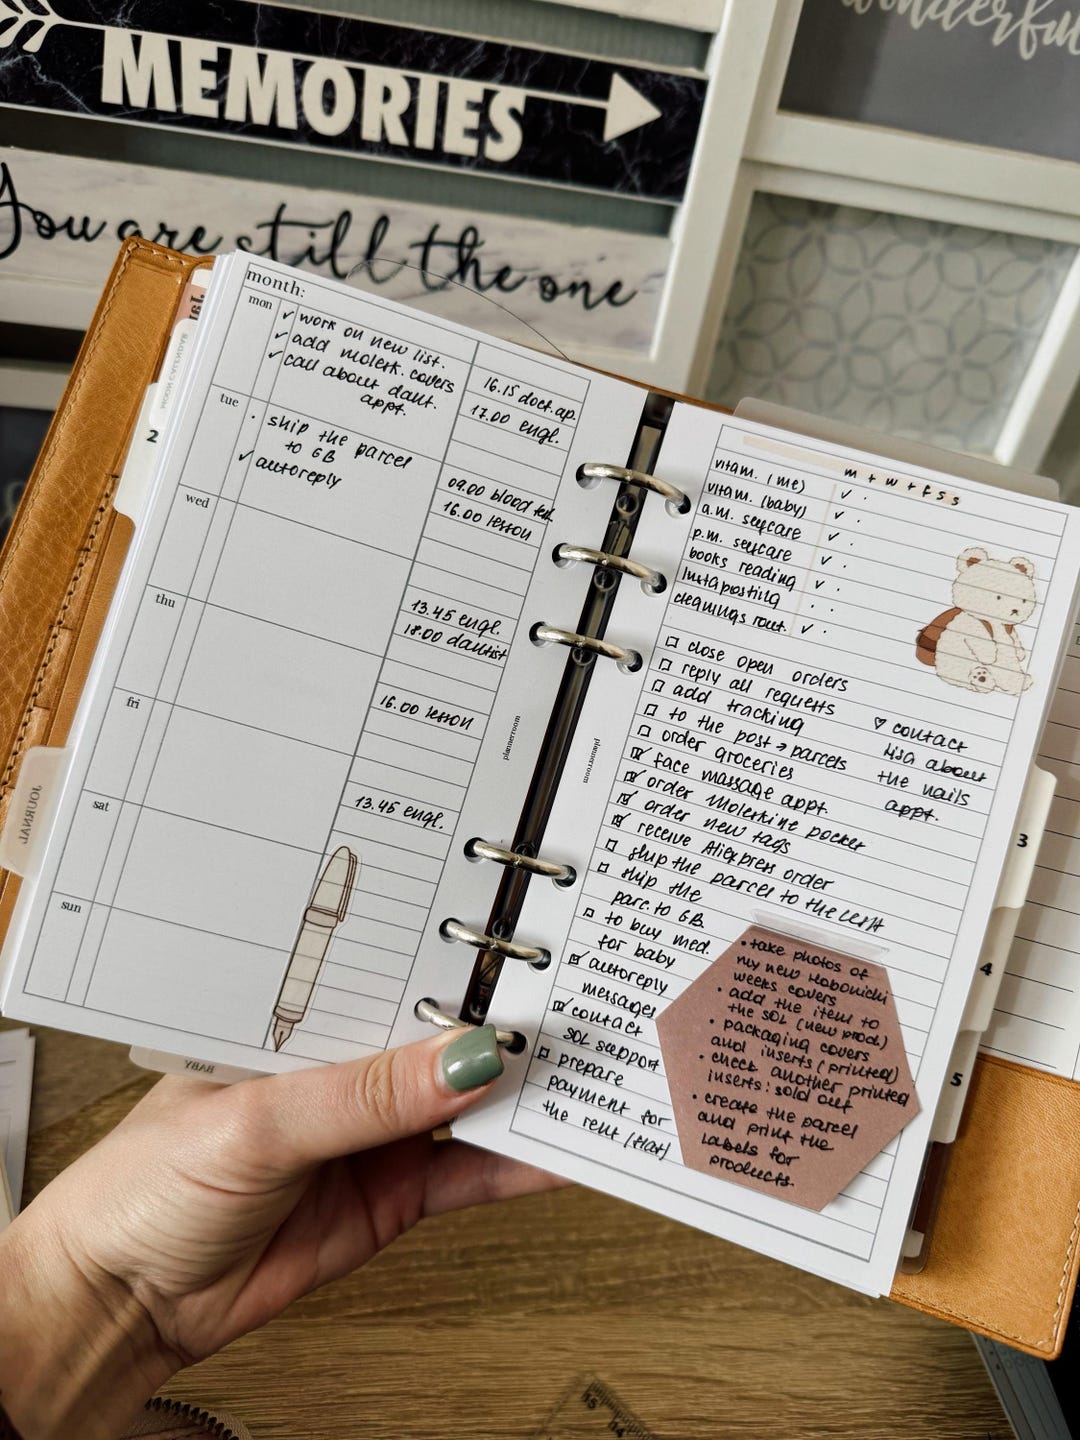 MEMORIES
wonderful
You are still the one
month:
mon
✓ work on new list.
✓ add molesk. covers
✓ call about dant.
appt.
16.15 doct. ap.
17.00 engl.
tue
· ship the parcel
to GB
✓ autoreply
09.00 blood
16.00 lesson
wed
13.45 engl.
18.00 dantist
thu
16.00 lesson
fri
13.45 engl.
sat
sun
plannerroom
MOON CALENDAR
2
JOURNAL
BABY
plannerroom
m t w t f s s
vitam. (me) ✓ ·
vitam. (baby) ✓ ·
a.m. seycare ✓ ·
p.m. seycare ✓ ·
books reading ✓ ·
instaposting · ·
cleanings rout. ✓ ·
☐ close open orders
☐ reply all requests
☐ add tracking
☐ to the post → parcels
☐ order groceries
☑ face massage appt.
☑ order moleskine pocket
☑ order new tags
☑ receive Aliexpress order
☐ ship the parcel to the
☐ ship the
parc. to GB.
☐ to buy med.
for baby
☑ autoreply
messages
☑ contact
SOL support
☐ prepare
payment for
the rent (flat)
♡ contact
lisa about
the nails
appt.
• take photos of
my new Hobonichi
weeks covers
• add the item to
the SOL (new prod)
• packaging covers
and inserts (printed)
• check another printed
inserts: sold out
• create the parcel
and print the
labels for
products.
3
4
5
15
14